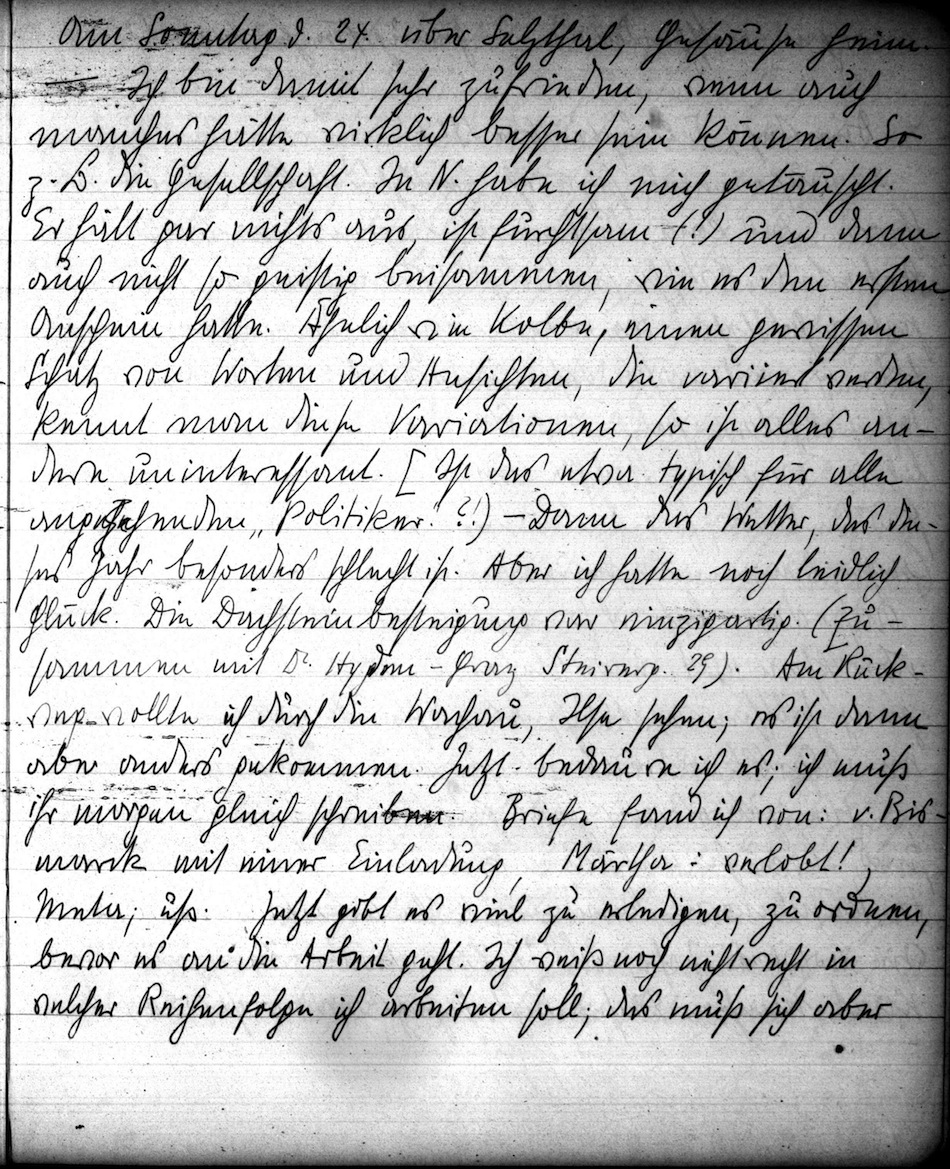 Am Sonntag d. 24. über Selzthal, Gesäuse heim.
Ich bin damit sehr zufrieden, wenn auch
manches hätte wirklich besser sein können. So
z. B. die Gesellschaft. In N. habe ich mich getäuscht.
Er hält gar nichts aus, ist furchtsam (!) und dann
auch nicht so geistig beisammen, wie es den ersten
Anschein hatte. Ähnlich wie Kolbe, einen gewissen
Schatz von Worten und Ansichten, die variiert werden,
kennt man diese Variationen, so ist alles an-
dere uninteressant. [Ist das etwa typisch für alle
angehenden „Politiker" ?!) – Dann das Wetter, das die-
ses Jahr besonders schlecht ist. Aber ich hatte noch leidlich
Glück. Die Dachsteinbesteigung war einzigartig. (Zu-
sammen mit Dr. – Graz 29). Am Rück-
weg wollte ich durch die Wachau, Ilse sehen; es ist dann
aber anders gekommen. Jetzt bedaure ich es; ich muß
ihr morgen gleich schreiben. Briefe fand ich von: v. Bis-
marck mit einer Einladung, Martha: verlobt!,
Meta; usw. Jetzt gibt es viel zu erledigen, zu ordnen,
bevor es an die Arbeit geht. Ich weiß noch nicht recht in
welcher Reihenfolge ich arbeiten soll; das muß sich aber